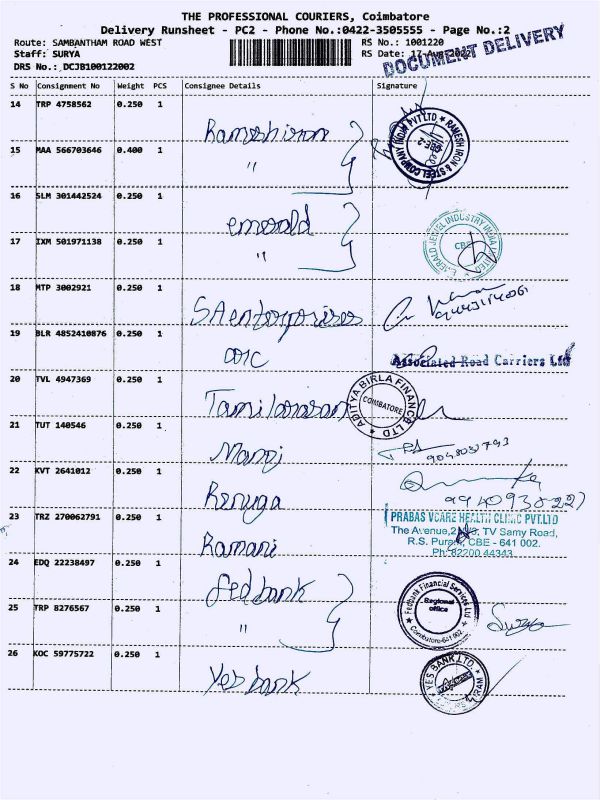 THE PROFESSIONAL COURIERS, Coimbatore
Delivery Runsheet - PC2 - Phone No.:0422-3505555 - Page No.:2
Route: SAMBANTHAM ROAD WEST RS No.: 1001220
Staff: SURYA RS Date: 17-Aug-2022
DRS No.: DCJB100122002
DOCUMENT DELIVERY
S No Consignment No Weight PCS Consignee Details Signature
14 TRP 4758562 0.250 1 Rameshiron
RAMESH IRON & STEEL COMPANY INDIA PVT LTD CBE-2
15 MAA 566703646 0.400 1 "
16 SLM 301442524 0.250 1 emerald
17 IXM 501971138 0.250 1 "
EMERALD JEWEL INDUSTRY INDIA LIMITED CBE
18 MTP 3002921 0.250 1 SA enterprises
19 BLR 4852410876 0.250 1 arc
Associated Road Carriers Ltd
20 TVL 4947369 0.250 1 Tamilarasan
ADITYA BIRLA FINANCE LTD COIMBATORE
21 TUT 140546 0.250 1 Manoj
22 KVT 2641012 0.250 1 Renuga
23 TRZ 270062791 0.250 1 Ramani
PRABAS VCARE HEALTH CLINIC PVT.LTD
The Avenue, TV Samy Road,
R.S. Puram, CBE - 641 002.
Ph:82200 44343
24 EDQ 22238497 0.250 1 fedbank
25 TRP 8276567 0.250 1 "
Fedbank Financial Services Ltd
Regional office
Coimbatore-641 002
26 KOC 59775722 0.250 1 Yes bank
YES BANK LTD.